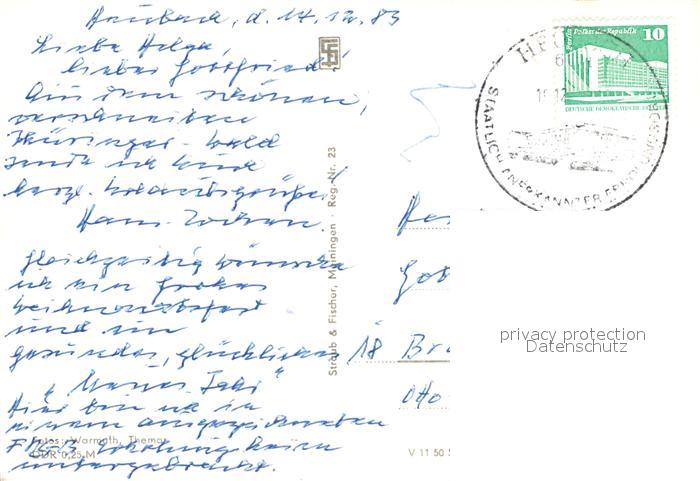 d. 17.12.83
Liebe Helga,
lieber Gottfried!
Aus dem schönen,
verschneiten
Thüringer-Wald
sende ich Euch
herzl. Urlaubsgrüße!
Hans-
Gleichzeitig wünsche
ich ein frohes
Weihnachtsfest
und ein
gesundes, glückliches
"Neues Jahr"
Hier bin ich in
einem ausgezeichneten
untergebracht.
Fotos: Warmuth, Themar
DDR 0,25 M
Straub & Fischer, Meiningen · Reg.-Nr. 23
V 11 50
He
Got
18 Br
Otto
10
Berlin Palast der Republik
DEUTSCHE DEMOKRATISCHE
STAATLICH ANERKANNTER ERHOLUNGSORT
privacy protection
Datenschutz